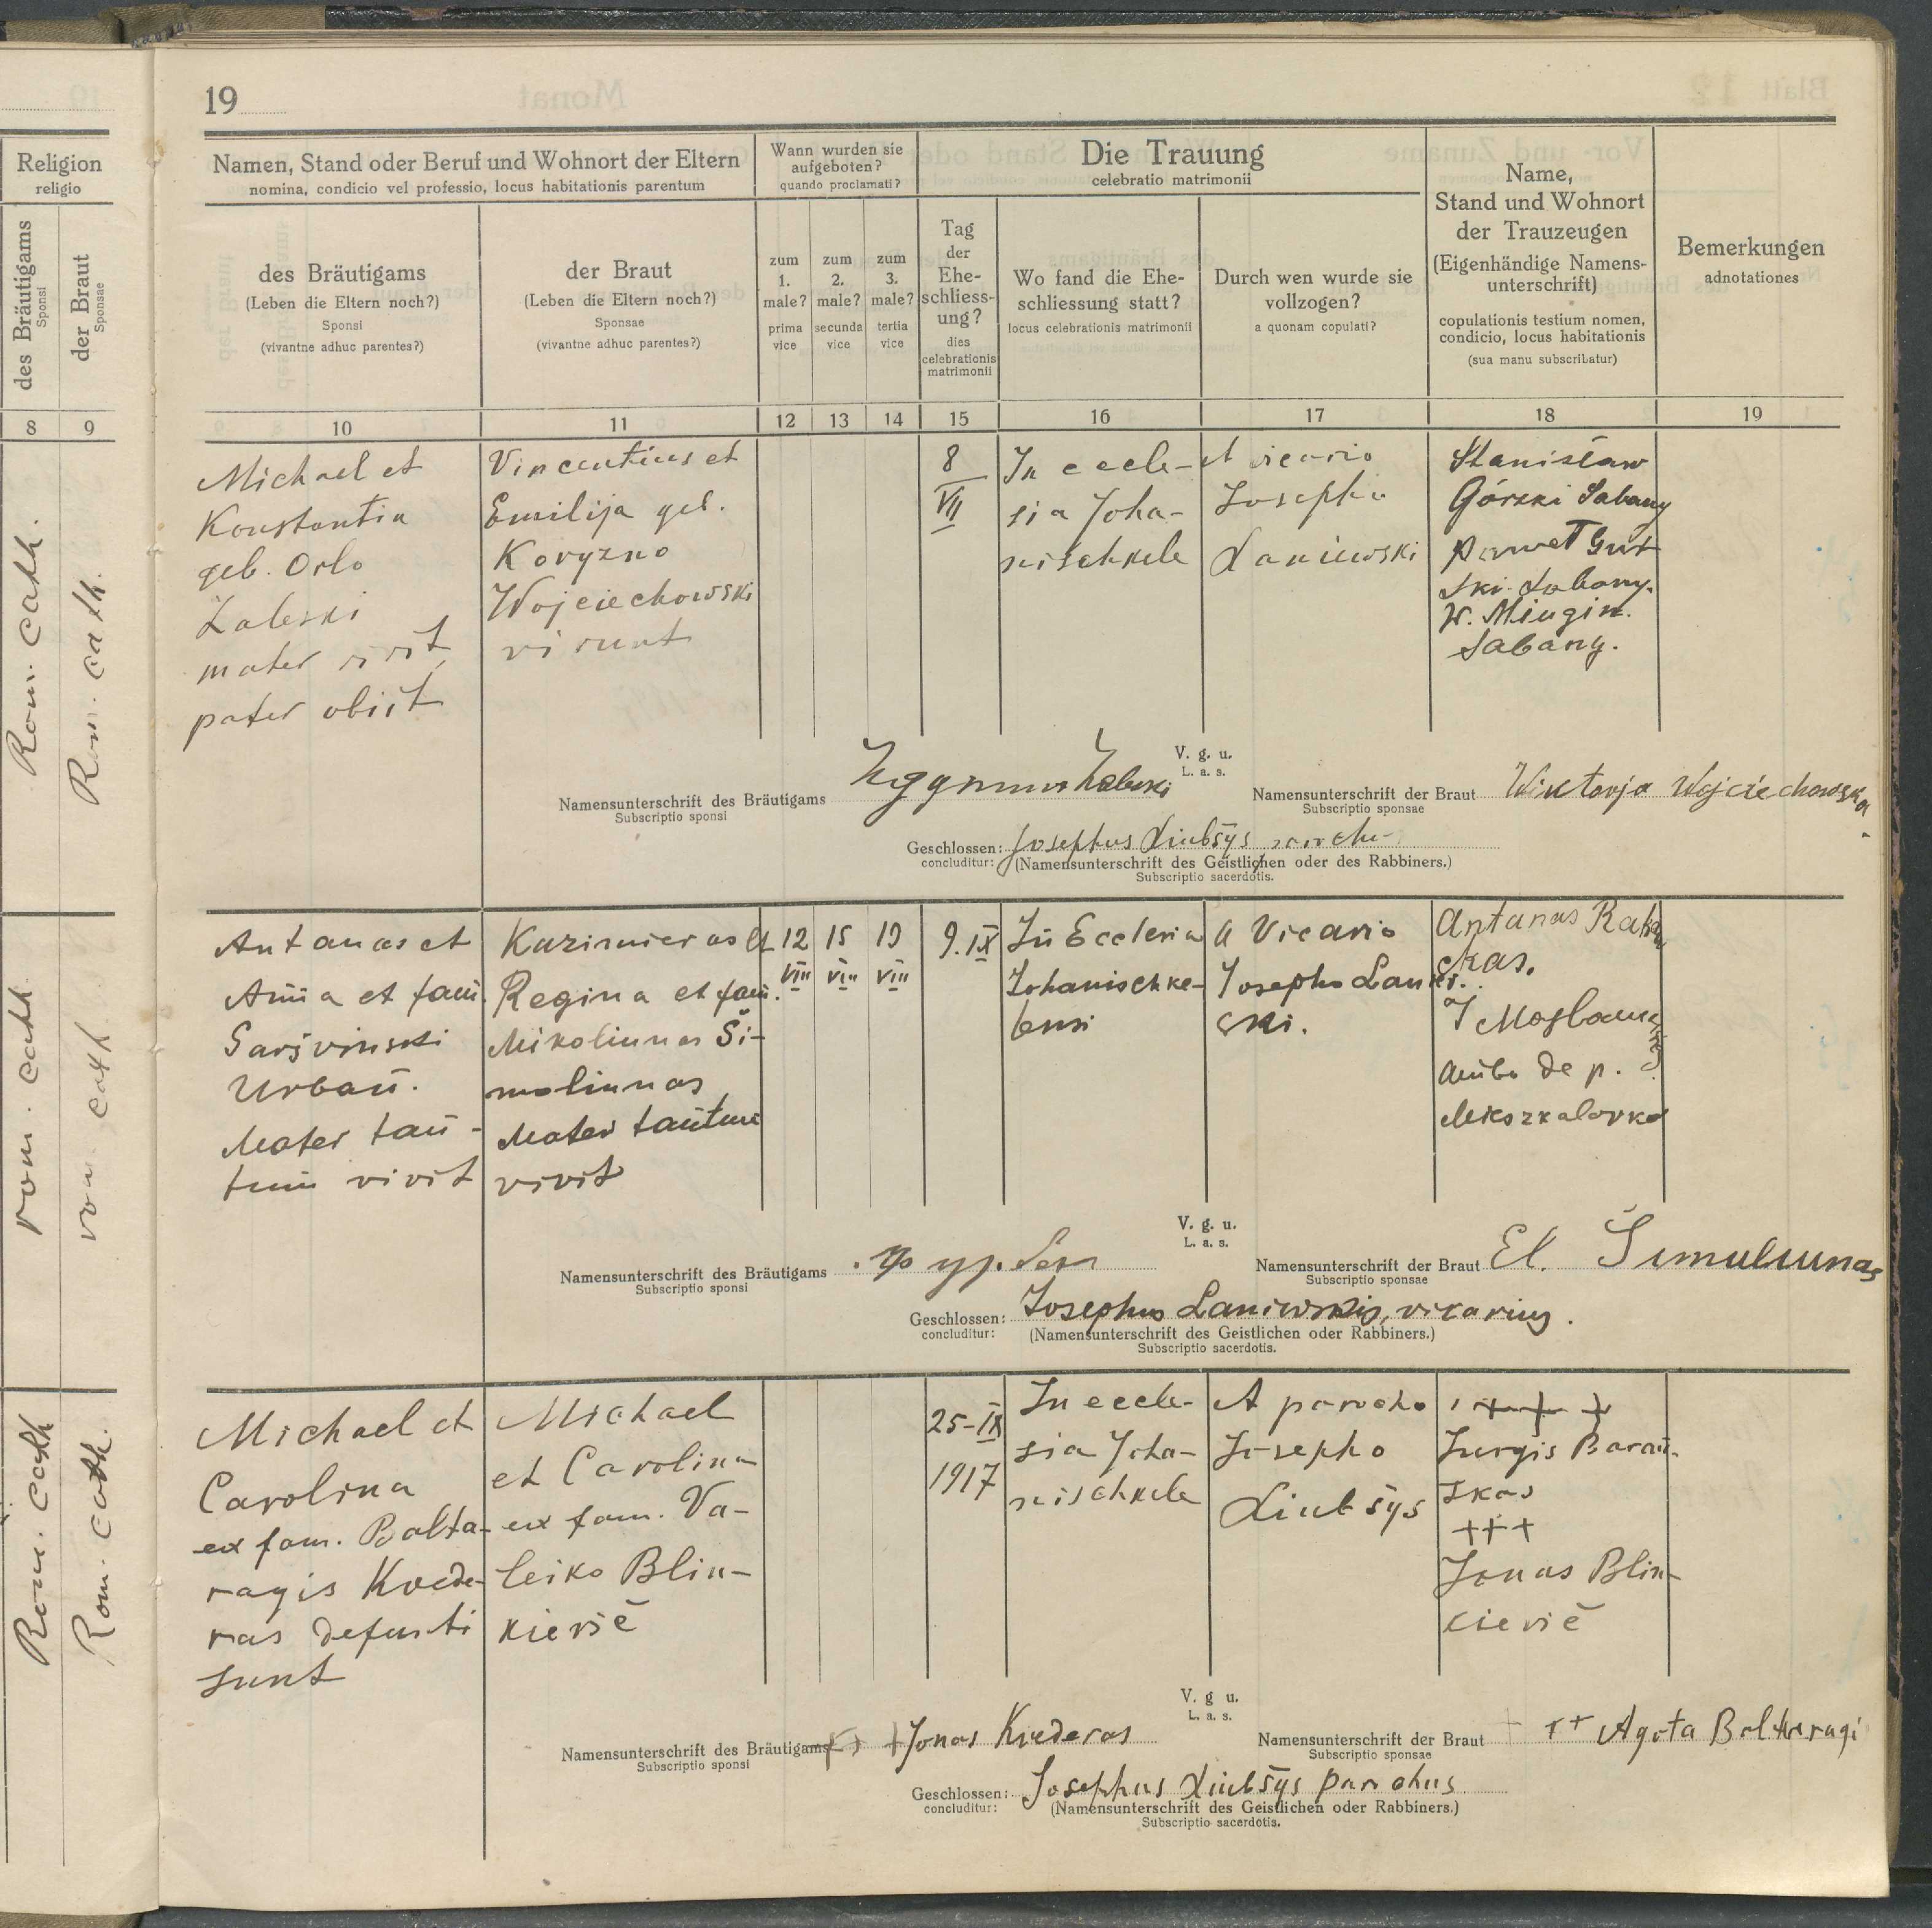 19
Religion
religio
des Bräutigams
Sponsi
der Braut
Sponsae
8 9
Rom. cath.
Rom. cath.
rom. cath.
rom. cath.
Rom. cath
Rom. cath.
Namen, Stand oder Beruf und Wohnort der Eltern
nomina, condicio vel professio, locus habitationis parentum
des Bräutigams
(Leben die Eltern noch?)
Sponsi
(vivantne adhuc parentes?)
der Braut
(Leben die Eltern noch?)
Sponsae
(vivantne adhuc parentes?)
Wann wurden sie
aufgeboten?
quando proclamati?
zum
1.
male?
prima
vice
zum
2.
male?
secunda
vice
zum
3.
male?
tertia
vice
Die Trauung
celebratio matrimonii
Tag
der
Ehe-
schliess-
ung?
dies
celebrationis
matrimonii
Wo fand die Ehe-
schliessung statt?
locus celebrationis matrimonii
Durch wen wurde sie
vollzogen?
a quonam copulati?
Name,
Stand und Wohnort
der Trauzeugen
(Eigenhändige Namens-
unterschrift)
copulationis testium nomen,
condicio, locus habitationis
(sua manu subscribatur)
Bemerkungen
adnotationes
10 11 12 13 14 15 16 17 18 19
Michael et
Konstantia
geb. Orlo
Zaleski
mater vivit,
pater obiit
Vincentius et
Emilija geb.
Koryzno
Wojciechowski
vivunt
8
VII
In eccle-
sia Joha-
nischkele
A vicario
Josepho
Laniewski
Stanisław
Górski Sabany
ski
W. Mingin.
Sabany.
V. g. u.
L. a. s.
Namensunterschrift des Bräutigams Zygmunt Zaleski
Subscriptio sponsi
Namensunterschrift der Braut Wiktorja Wojciechowska.
Subscriptio sponsae
Geschlossen: Josephus Liubšys
concluditur: (Namensunterschrift des Geistlichen oder des Rabbiners.)
Subscriptio sacerdotis.
Antanas et
Anna et fam.
Saršvinski
Urban.
Mater tan-
tum vivit
Kazimieras et
Regina et fam.
Mikoliunas Ši-
moliunas
Mater tantum
vivit
12
VIII
15
VIII
19
VIII
9. IX
In Ecclesia
Johanischke-
lensi
A Vicario
Josepho Laniew-
ski.
Antanas
ckas.
ambo de p.
V. g. u.
L. a. s.
Namensunterschrift des Bräutigams
Subscriptio sponsi
Namensunterschrift der Braut El. Šimuliunas
Subscriptio sponsae
Geschlossen: Josephus Laniewskis, vikarius.
concluditur: (Namensunterschrift des Geistlichen oder Rabbiners.)
Subscriptio sacerdotis.
Michael et
Carolina
ex fam. Balta-
ragis Kvede-
ras defuncti
sunt
Michael
et Carolina
ex fam. Va-
leiko Blin-
kievič
25-IX
1917
In eccle-
sia Joha-
nischkele
A parocho
Josepho
Liubšys
+ + +
Jurgis Baraū-
skas
+++
Jonas Blin-
kievič
V. g u.
L. a. s.
Namensunterschrift des Bräutigams + + + Jonas Kvederas
Subscriptio sponsi
Namensunterschrift der Braut + + + Agota Baltaragi
Subscriptio sponsae
Geschlossen: Josephus Liubšys parochus
concluditur: (Namensunterschrift des Geistlichen oder Rabbiners.)
Subscriptio sacerdotis.